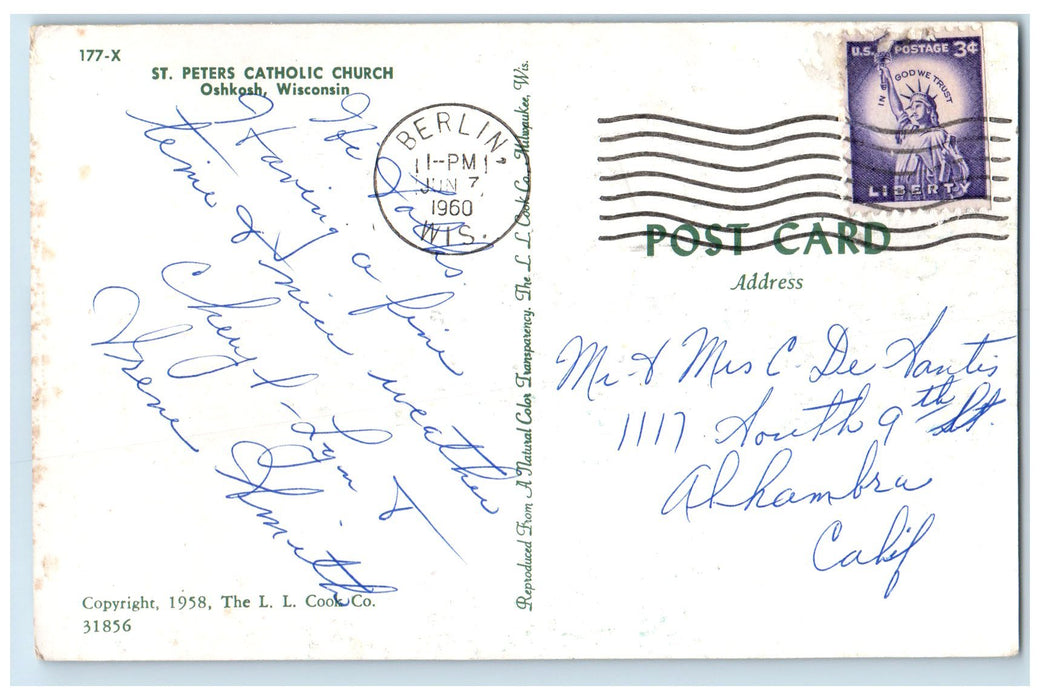 177-X
ST. PETERS CATHOLIC CHURCH
Oshkosh, Wisconsin
Hi
Having a fine
time & nice weather
Cheryl - Lynn &
Irene Smith
BERLIN
1-PM
JUN 7
1960
WIS.
Reproduced From A Natural Color Transparency. The L. L. Cook Co., Milwaukee, Wis.
U.S. POSTAGE 3¢
IN GOD WE TRUST
LIBERTY
POST CARD
Address
Mr & Mrs C. De Santis
1117 South 9th St.
Alhambra
Calif
Copyright, 1958, The L. L. Cook Co.
31856